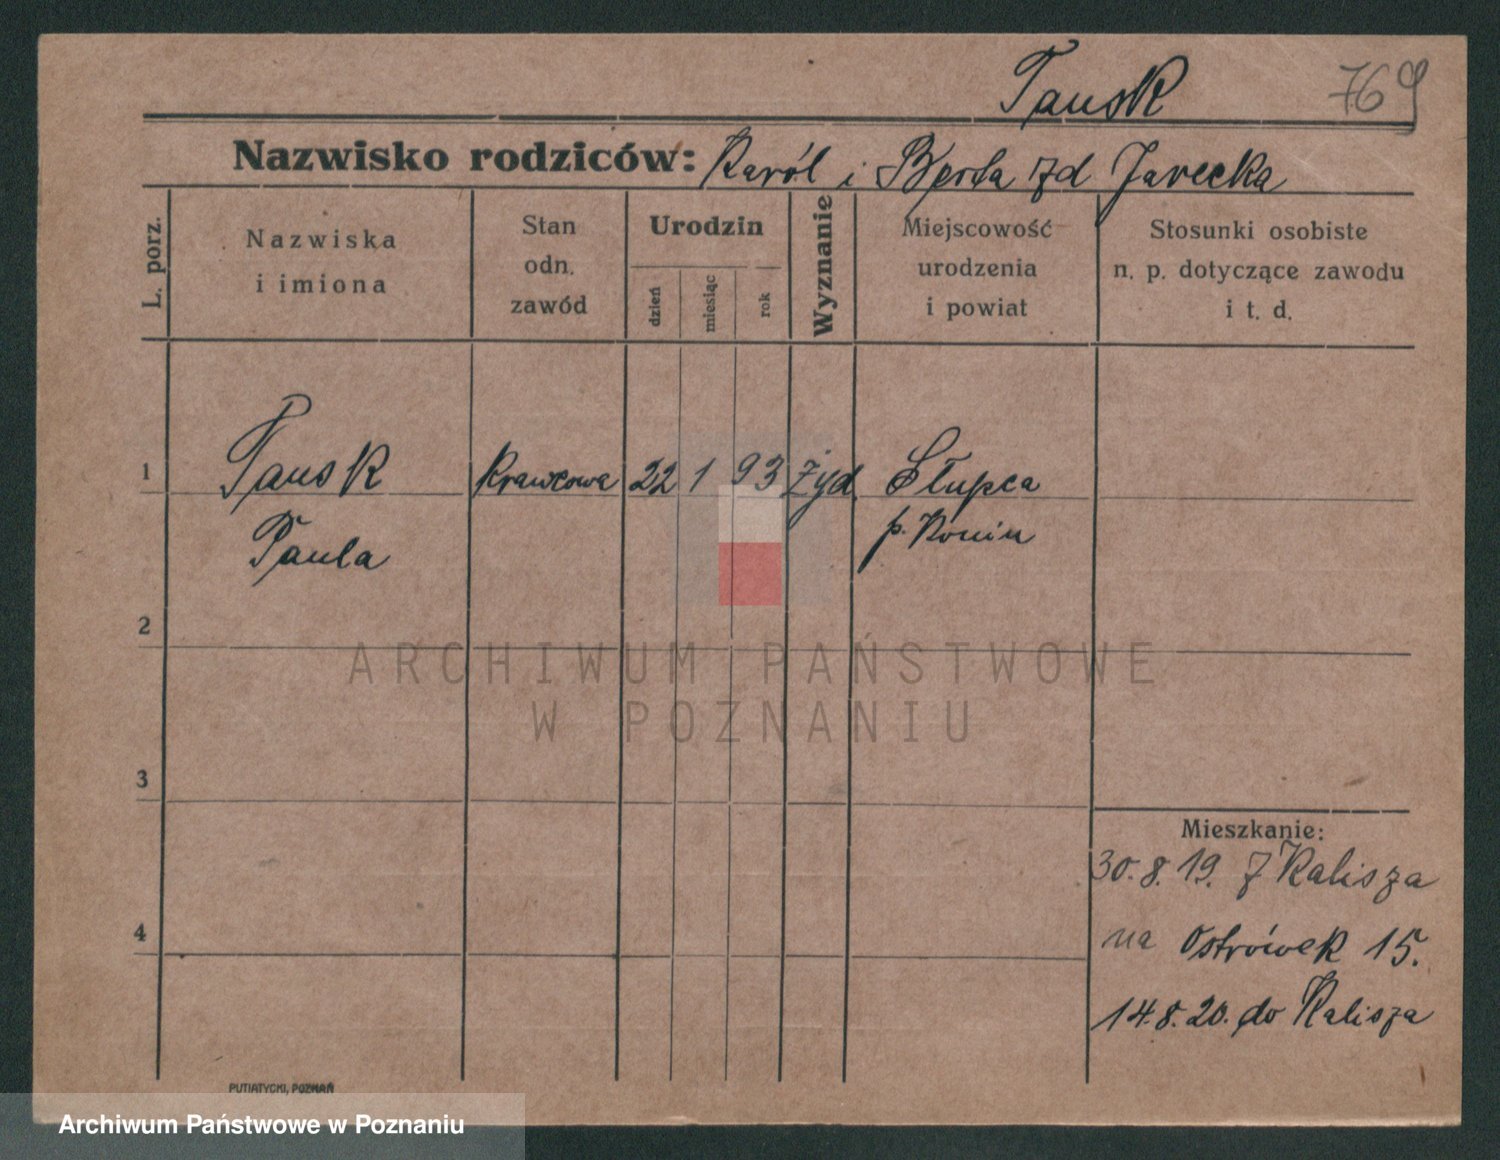 Tausk 769
Nazwisko rodziców: Karól i Berta zd Jarecka
L. porz.
Nazwiska
i imiona
Stan
odn.
zawód
Urodzin
dzień
miesiąc
rok
Wyznanie
Miejscowość
urodzenia
i powiat
Stosunki osobiste
n. p. dotyczące zawodu
i t. d.
1 Tausk Krawcowa 22 1 93 Żyd. Słupca
Paula p. Konin
2
ARCHIWUM PAŃSTWOWE
W POZNANIU
3
Mieszkanie:
30.8.19. z Kalisza
4 na Ostrówek 15.
14.8.20. do Kalisza
PUTIATYCKI, POZNAŃ
Archiwum Państwowe w Poznaniu